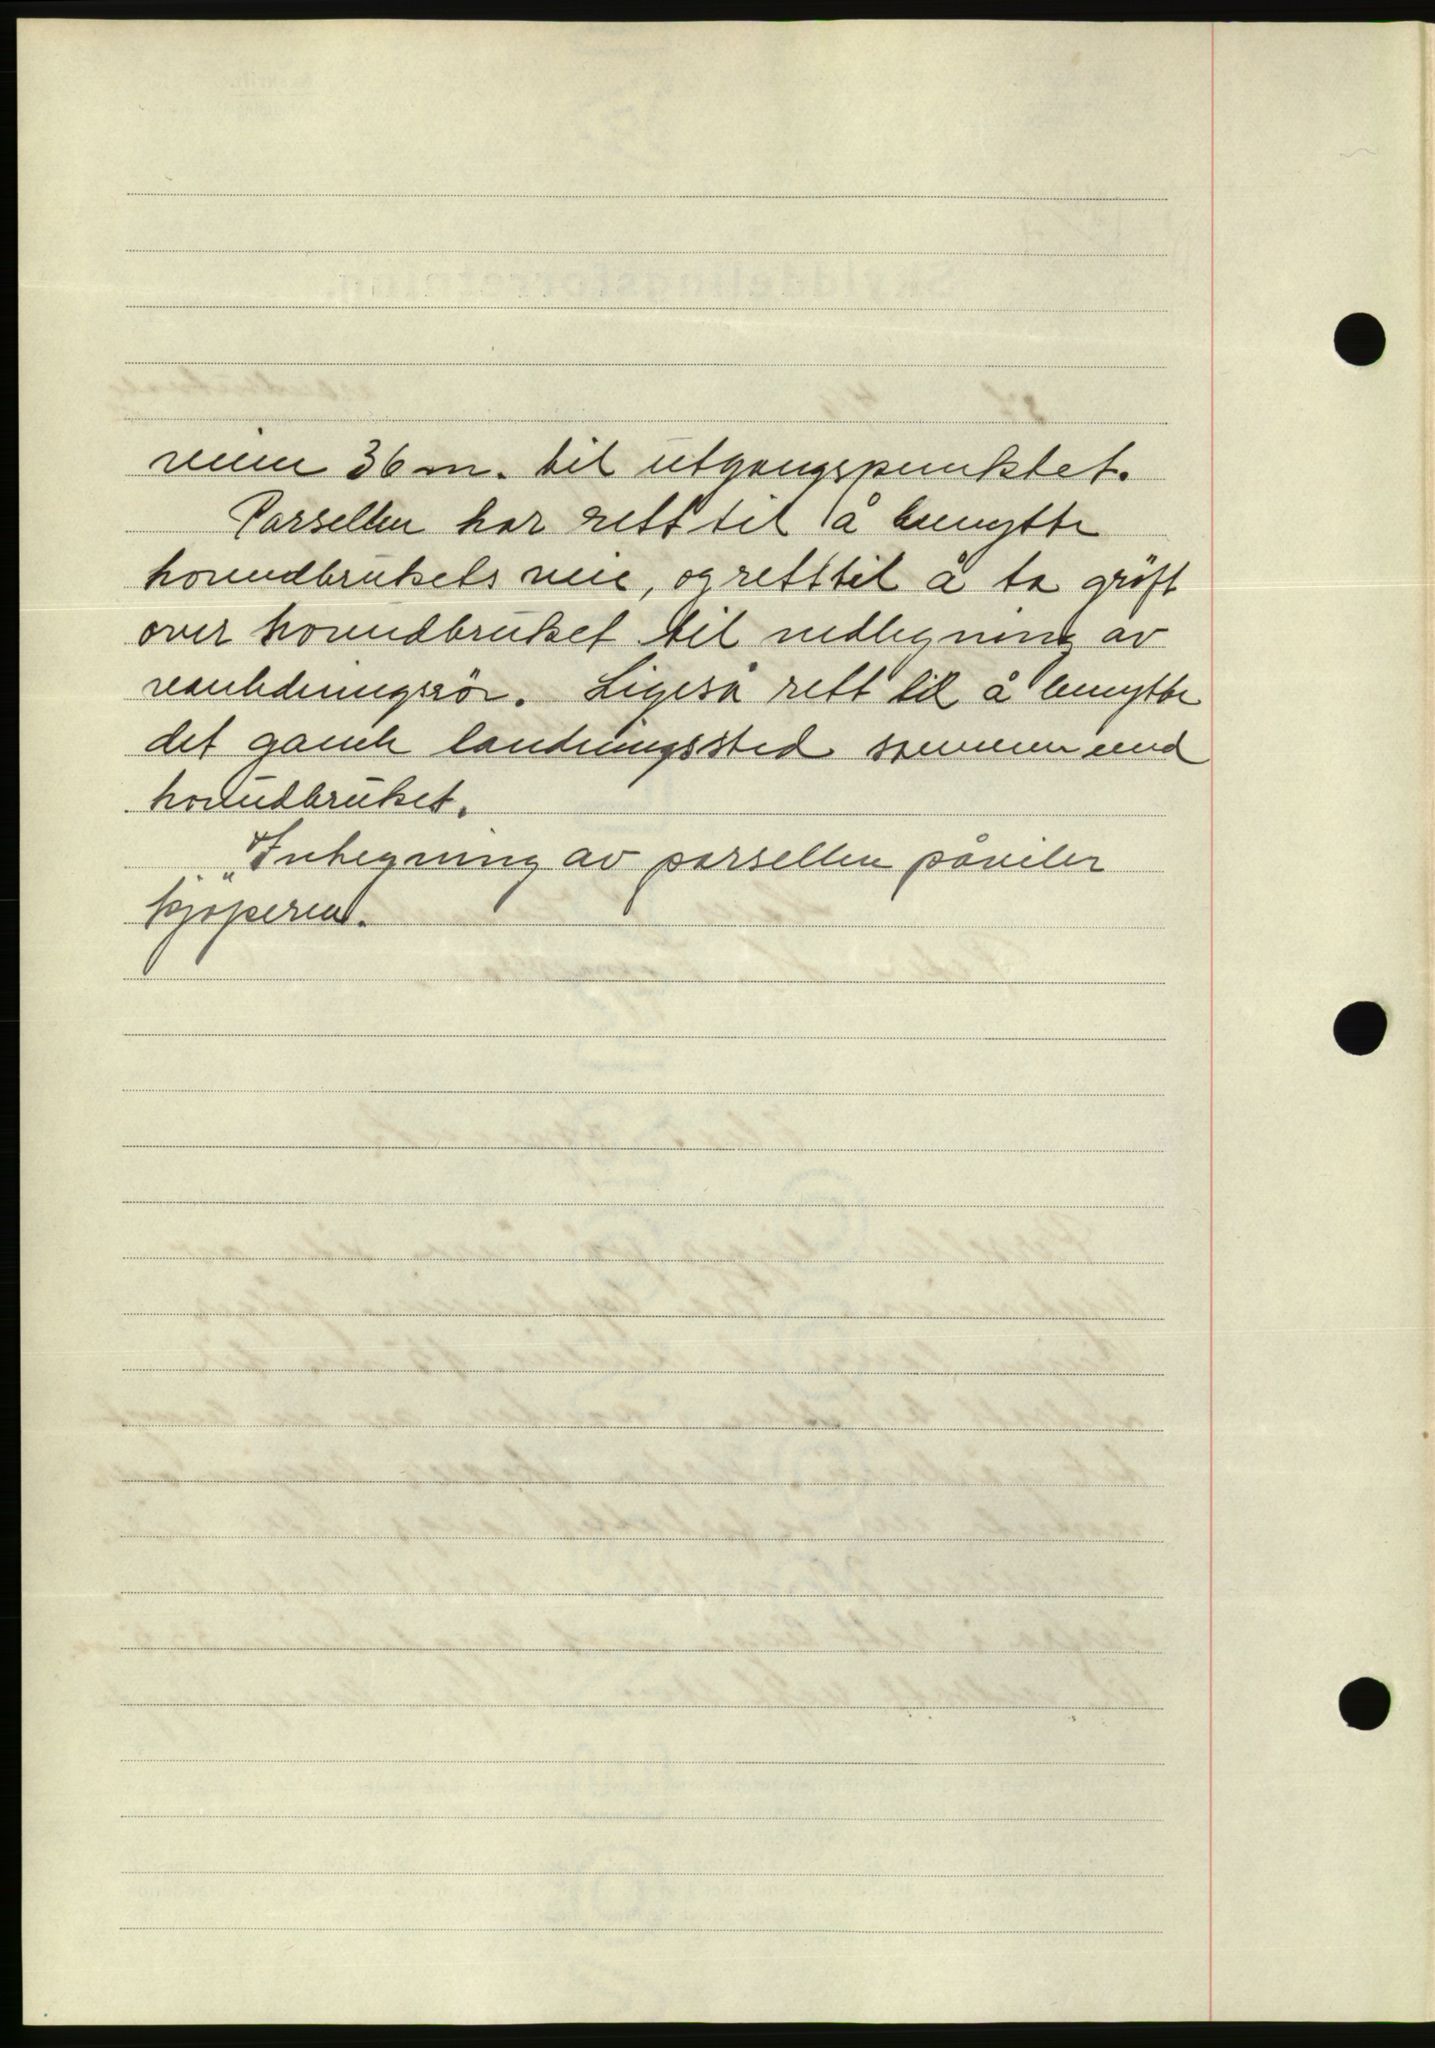 veien 36 m. til utgangspunktet.
Parsellen har rett til å benytte
hovudbrukets veie, og rett til å ta gröft
over hovudbruket til nedlegning av
vanledningsrör. Ligeså rett til å benytte
det gamle landningssted sammen med
hovudbruket.
Inhegning av parsellen påviler
kjöperen.